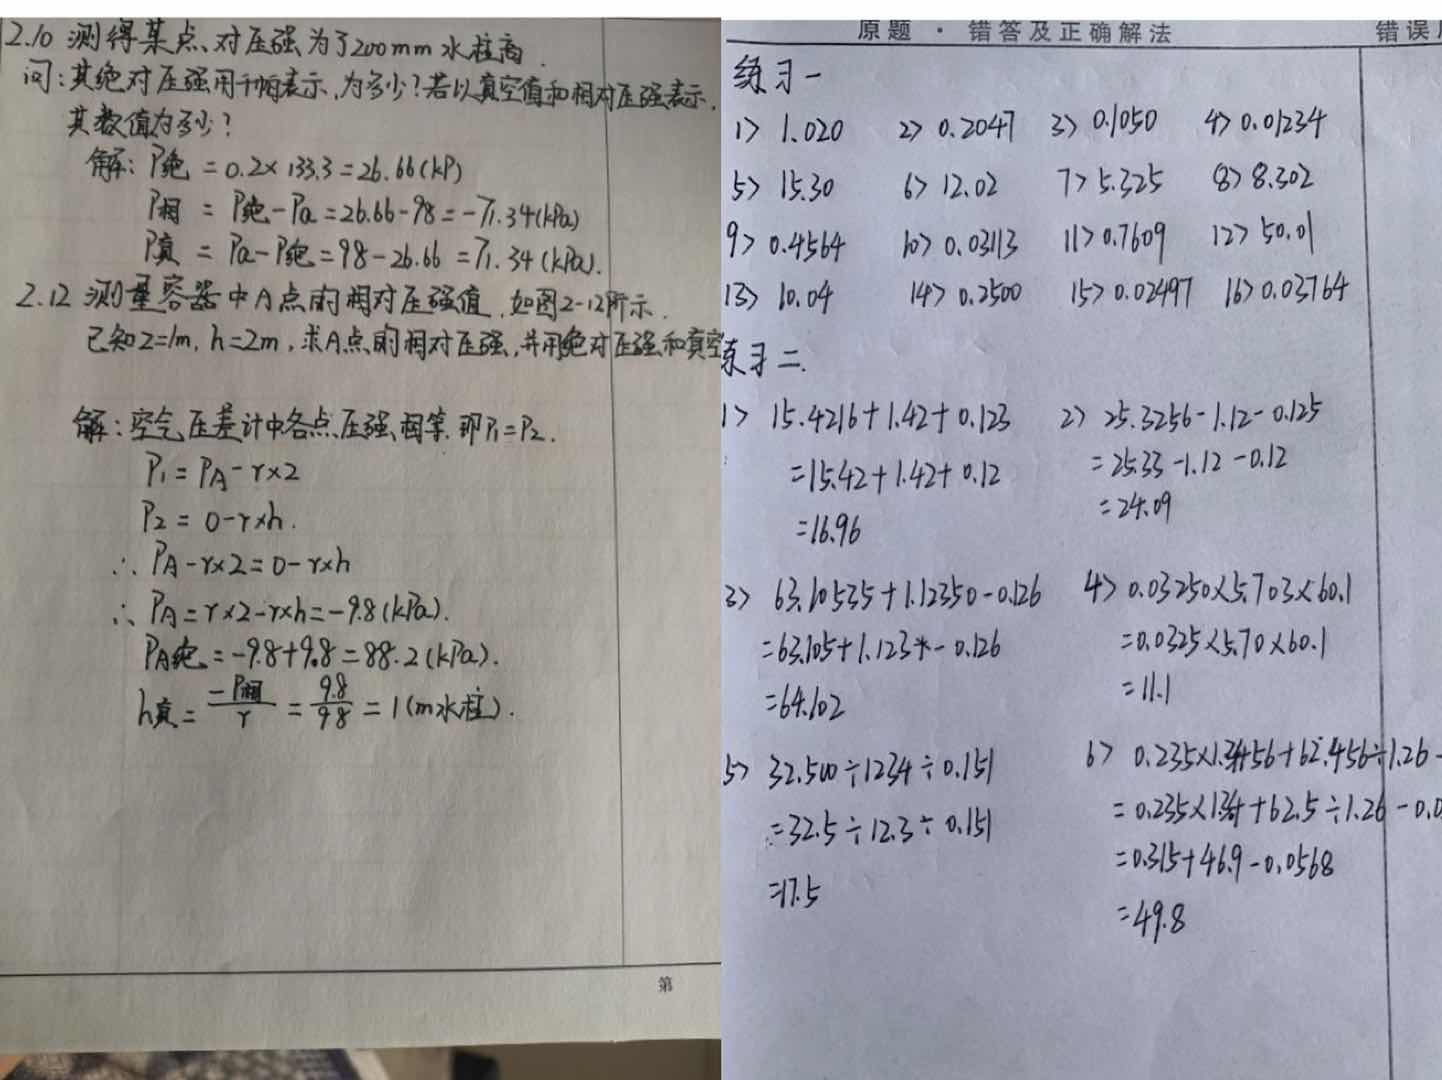 2.10 测得某点、对压强为了200mm 水柱高.
问:其绝对压强用千帕表示,为多少?若以真空值和相对压强表示,
其数值为多少?
解: P绝 = 0.2×133.3=26.66(kP)
P相 = P绝-Pa=26.66-98=-71.34(kPa)
P真 = Pa-P绝=98-26.66=71.34(kPa).
2.12 测量容器中A点的相对压强值,如图2-12所示.
已知Z=1m, h=2m,求A点的相对压强,并用绝对压强和真空
解:空气压差计中各点压强相等,即P1=P2.
P1=PA-r×2
P2=0-r×h.
∴ PA-r×2=0-r×h
∴ PA=r×2-r×h=-9.8(kPa).
PA绝=-9.8+9.8=88.2(kPa).
h真= -P相/r = 9.8/98 = 1(m水柱).
第
原题 · 错答及正确解法
错误
练习一
1> 1.020 2> 0.2047 3> 0.1050 4> 0.01234
5> 15.30 6> 12.02 7> 5.325 8> 8.302
9> 0.4564 10> 0.03113 11> 0.7609 12> 50.01
13> 10.04 14> 0.2500 15> 0.02497 16> 0.03764
练习二.
1> 15.4216+1.42+0.123 2> 25.3256-1.12-0.125
=15.42+1.42+0.12 =25.33-1.12-0.12
=16.96 =24.09
3> 63.10535+1.12350-0.126 4> 0.03250×5.703×60.1
=63.105+1.123-0.126 =0.0325×5.70×60.1
=64.102 =11.1
5> 32.500÷1234÷0.151 6> 0.235×1.3456+62.456÷1.26-
=32.5÷12.3÷0.151 =0.235×1.34+62.5÷1.26-0.0
=17.5 =0.315+46.9-0.0568
=49.8